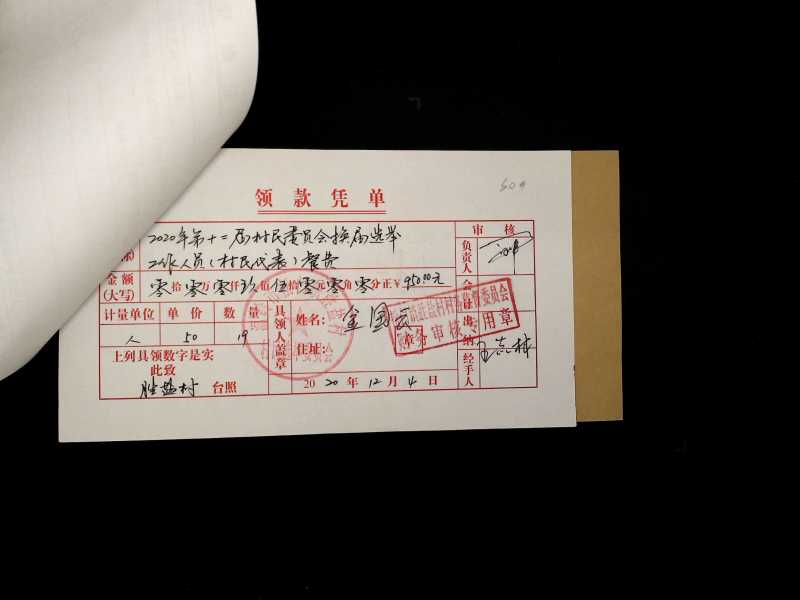 509
领款凭单
2020年第十二届村民委员会换届选举
工作人员(村民代表)餐费
审核
负责人
金额
(大写)
零拾零万零仟玖佰伍拾零元零角零分正¥950.00元
计量单位 单价 数量
人 50 19
具领人盖章
姓名: 金国云
住址:
村务监督委员会
审核专用章
会计
出纳
经手人
上列具领数字是实
此致
胜盐村 台照
2020年12月4日